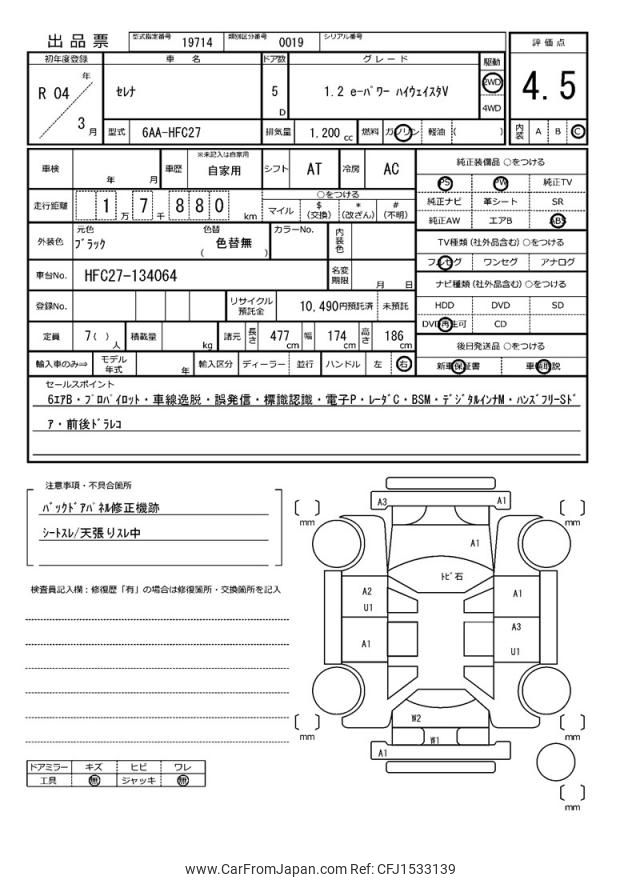 出品票 型式指定番号 19714 類別区分番号 0019 シリアル番号
評価点
4.5
内装 A B C
初年度登録 車名 ドア数 グレード 駆動
R 04 年 3 月
セレナ 5 D 1.2 e-パワー ハイウェイスタV 2WD
4WD
型式 6AA-HFC27 排気量 1.200 cc 燃料 ガソリン 軽油 ( )
車検 年 月 車歴 ※未記入は自家用 自家用 シフト AT 冷房 AC
走行距離 1 万 7 千 8 8 0 km
○をつける
マイル $(交換) *(改ざん) #(不明)
外装色 元色 ブラック 色替 ( 色替無 ) カラーNo. 内装色
車台No. HFC27-134064 名変期限 月 日
登録No. リサイクル預託金 10.490円預託済 未預託
定員 7( )人 積載量 kg 諸元 長さ 477cm 幅 174cm 高さ 186cm
輸入車のみ⇒ モデル年式 年 輸入区分 ディーラー 並行 ハンドル 左 右
純正装備品 ○をつける
PS PW 純正TV
純正ナビ 革シート SR
純正AW エアB ABS
TV種類(社外品含む)○をつける
フルセグ ワンセグ アナログ
ナビ種類(社外品含む)○をつける
HDD DVD SD
DVD再生可 CD
後日発送品 ○をつける
新車保証書 車輌取説
セールスポイント
6エアB・プロパイロット・車線逸脱・誤発信・標識認識・電子P・レーダC・BSM・デジタルインナM・ハンズフリーSド
ア・前後ドラレコ
注意事項・不具合箇所
バックドアパネル修正機跡
シートスレ/天張りスレ中
検査員記入欄:修復歴「有」の場合は修復箇所・交換箇所を記入
ドアミラー キズ ヒビ ワレ
工具 無 ジャッキ 無
A3 A1
mm mm
A1
トビ石
A2 U1 A1
A1 A3 U1
W2
mm W1 mm
A1
mm
www.CarFromJapan.com Ref: CFJ1533139